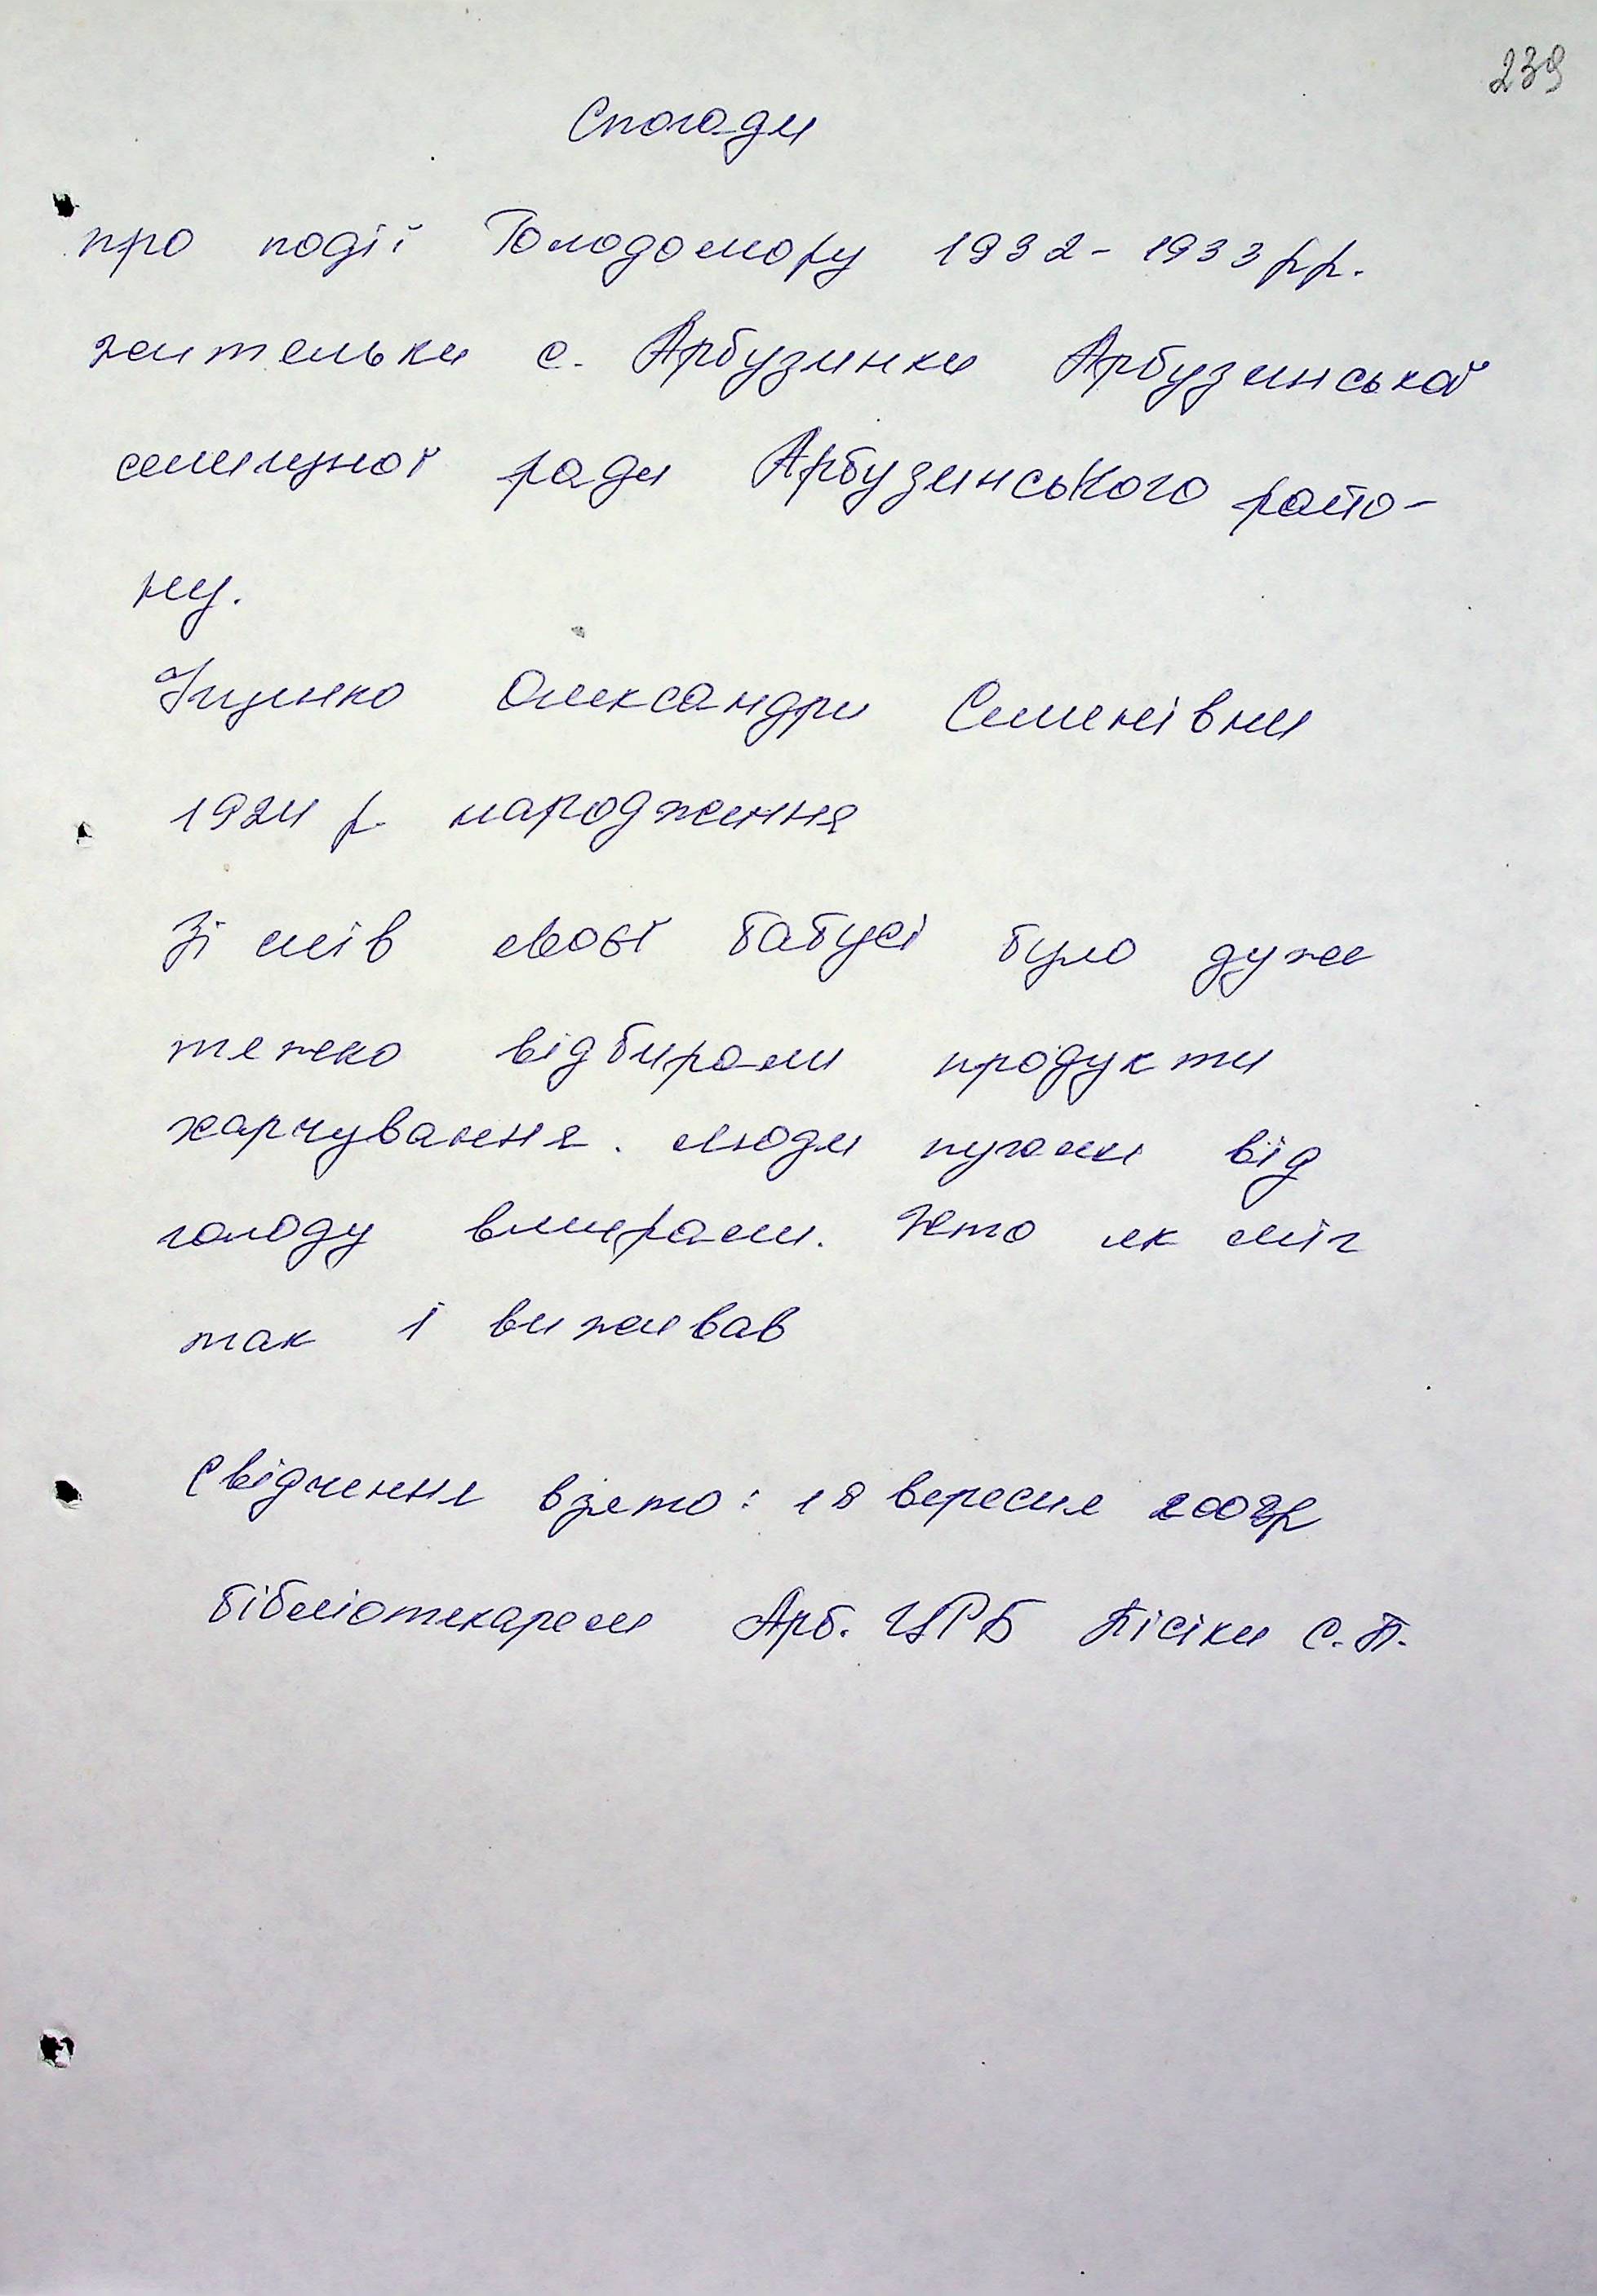 239
Спогади
про події Голодомору 1932-1933 рр.
жительки с. Арбузинки Арбузинської
селищної ради Арбузинського райо-
ну.
Іщенко Олександри Семенівни
1924 р. народження
Зі слів моєї бабусі було дуже
тяжко відбирали продукти
харчування. Люди пухли від
голоду вмирали. Хто як міг
так і виживав
Свідчення взято: 18 вересня 2008р
бібліотекарем Арб. ЦРБ Пісіки С.П.